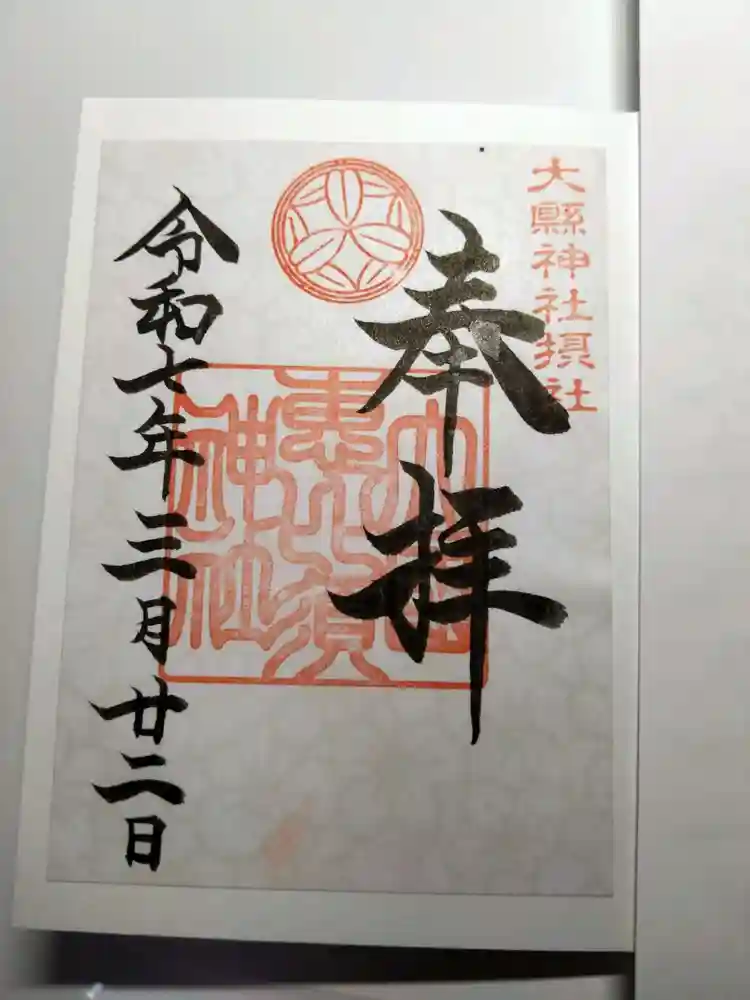 大縣神社摂社
奉拝
大縣
恵比須
神社
令和七年三月廿二日